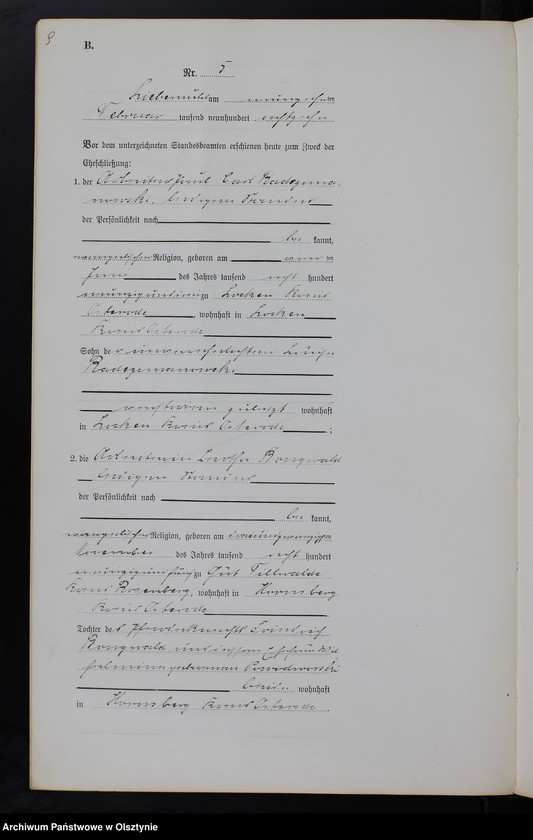 9
B.
Nr. 5
Liebemühl am neunzehn ten
Februar tausend neunhundert achtzehn
Vor dem unterzeichneten Standesbeamten erschienen heute zum Zweck der
Eheschließung:
1. der Arbeiter Paul Radzyma-
nowski, ledigen Standes
der Persönlichkeit nach
be kannt,
evangelischer Religion, geboren am ten
Juni des Jahres tausend acht hundert
zu Locken Kreis
Osterode, wohnhaft in Locken
Kreis Osterode
Sohn der unverehelichten
Radzymanowski
zuletzt wohnhaft
in Locken Kreis Osterode;
2. die Arbeiterin Luise Rongwald
ledigen Standes
der Persönlichkeit nach
be kannt,
evangelischer Religion, geboren am
November des Jahres tausend acht hundert
neunzig und fünf zu Gut Tillwalde
Kreis Rosenberg, wohnhaft in Hornsberg
Kreis Osterode
Tochter des Pferdeknechts Friedrich
Rongwald und dessen Ehefrau
geborenen
beide wohnhaft
in Hornsberg Kreis Osterode.
Archiwum Państwowe w Olsztynie